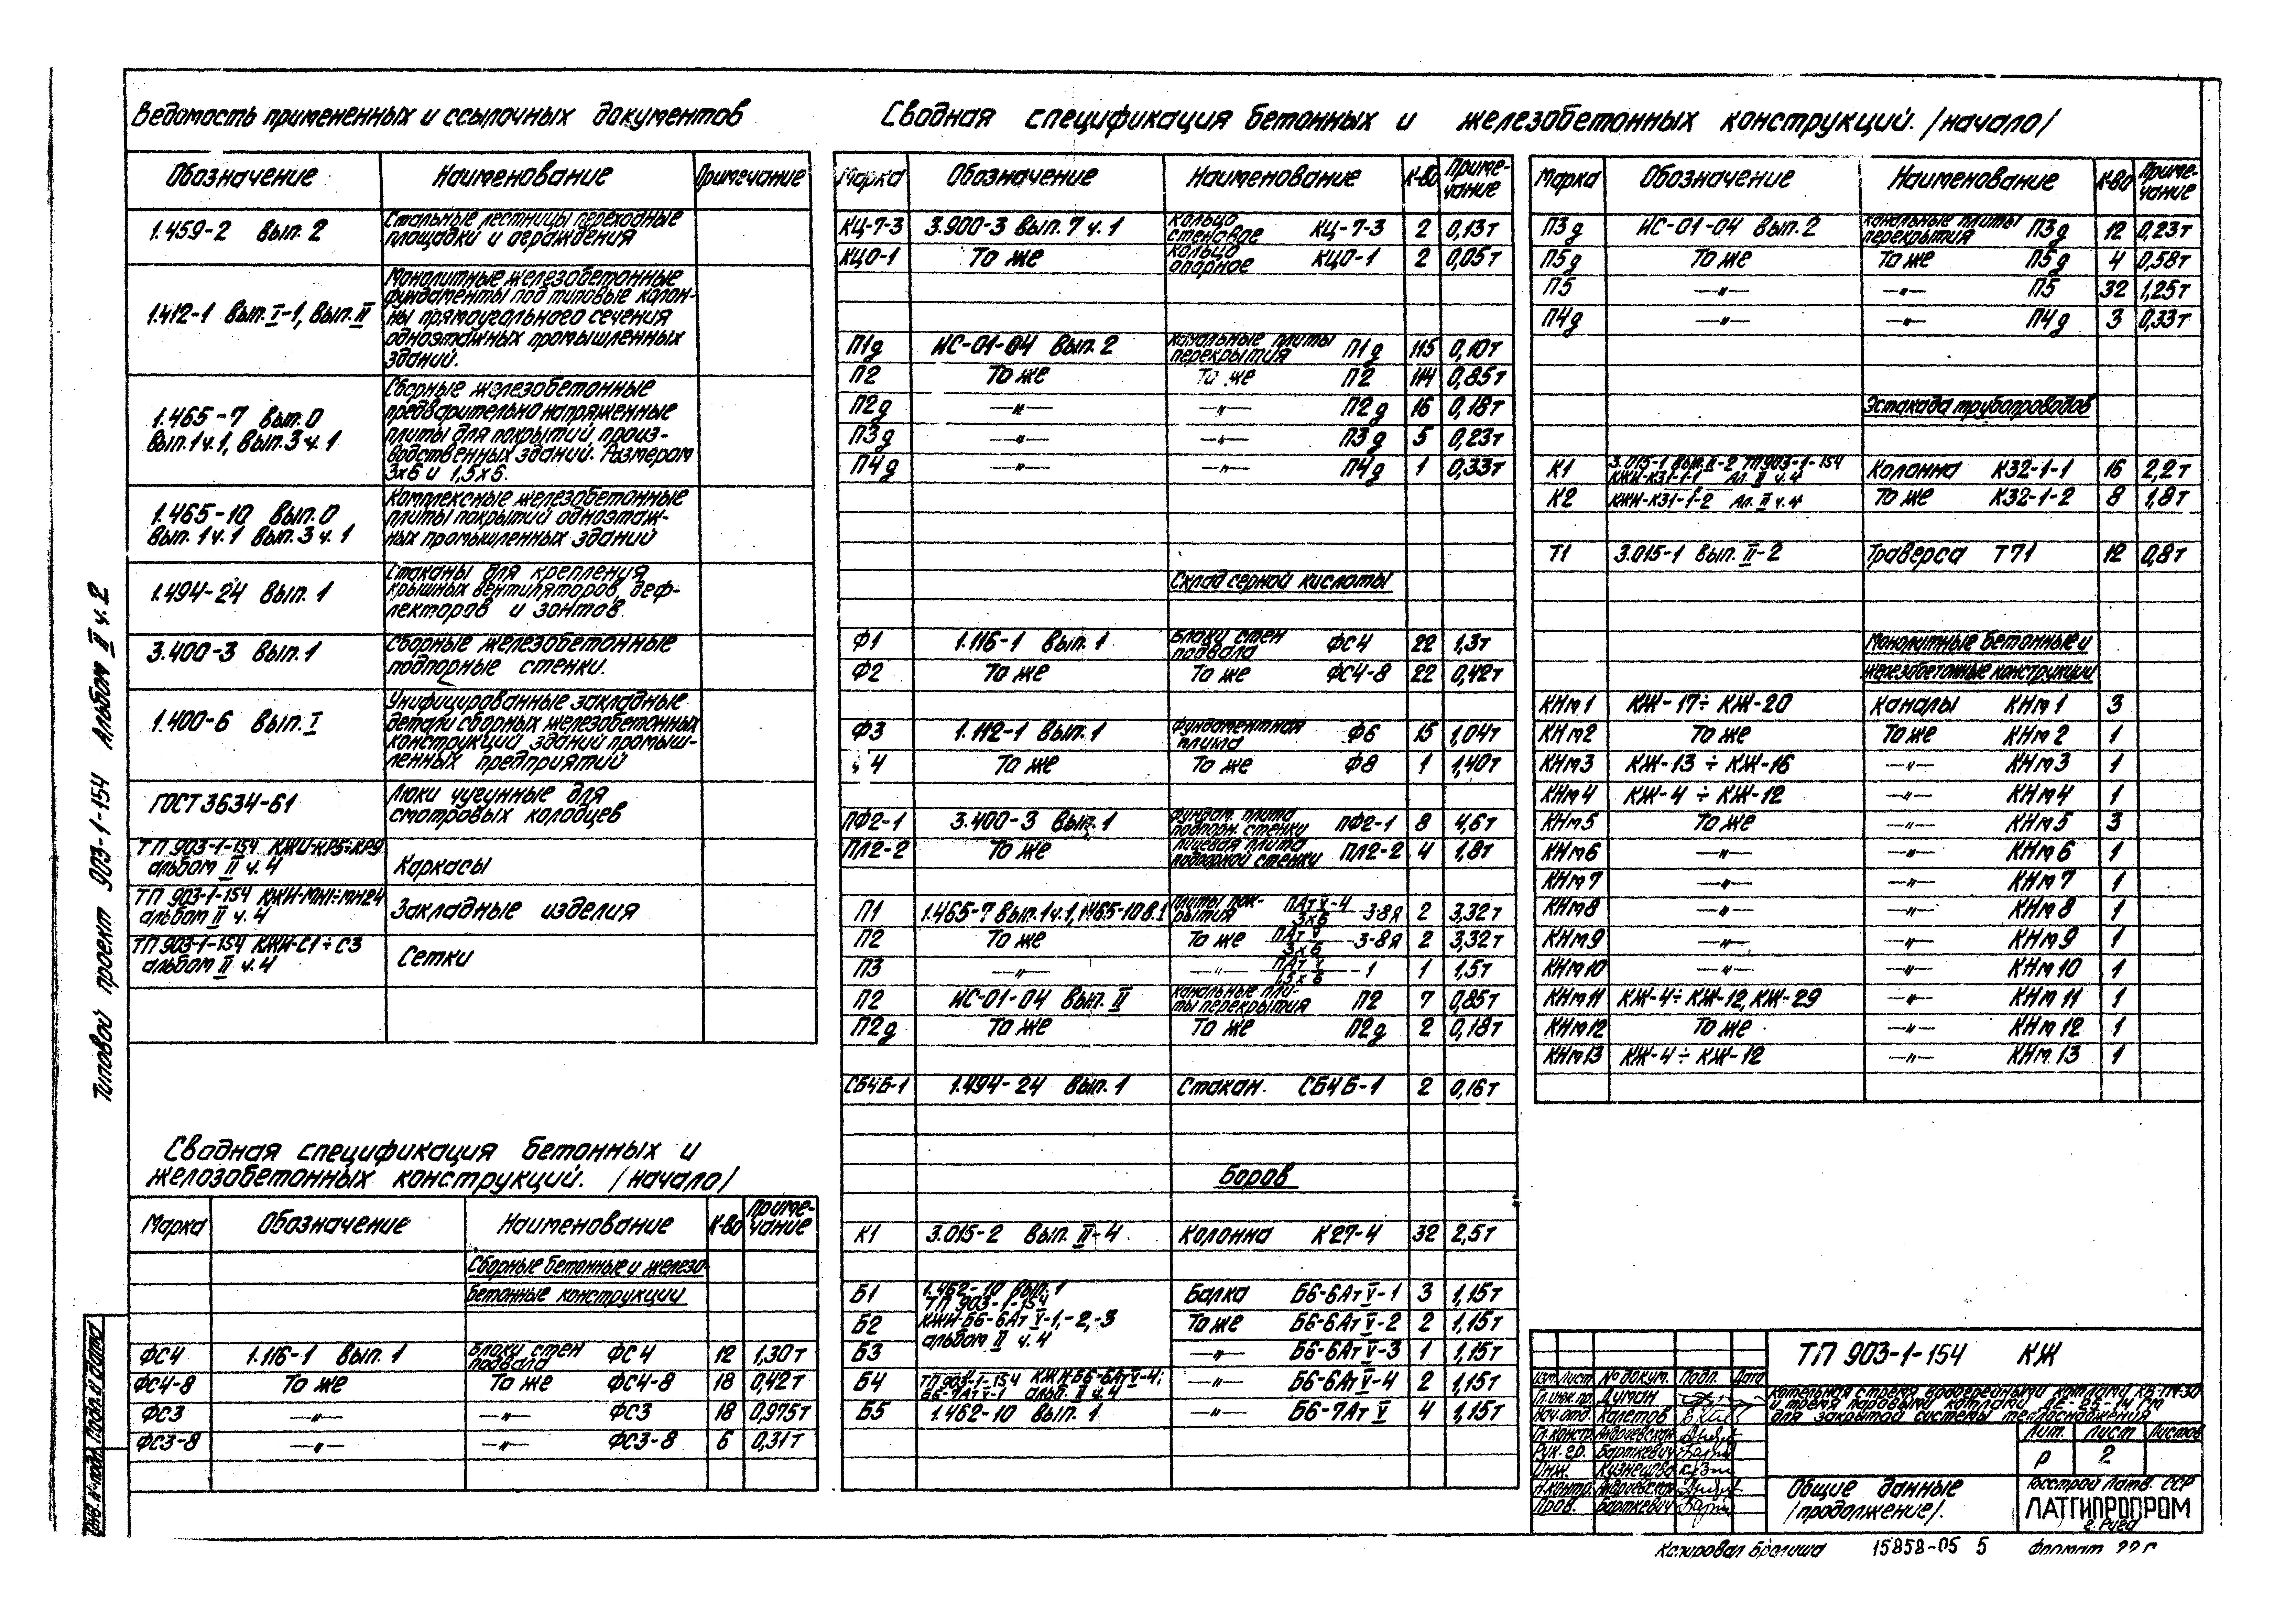 Типовой проект 903-1-154 Альбом II ч.2
Инв.№ подл. Подп. и дата
Ведомость примененных и ссылочных документов
Обозначение Наименование Примечание
1.459-2 Вып. 2 Стальные лестницы, переходные
площадки и ограждения
1.412-1 Вып. I-1, Вып. II Монолитные железобетонные
фундаменты под типовые колон-
ны прямоугольного сечения
одноэтажных промышленных
зданий.
1.465-7 Вып.0
Вып.1 ч.1, Вып.3 ч.1
Сборные железобетонные
предварительно напряженные
плиты для покрытий произ-
водственных зданий. Размером
3х6 и 1,5х6.
1.465-10 Вып.0
Вып. 1 ч.1 Вып. 3 ч. 1
Комплексные железобетонные
плиты покрытий одноэтаж-
ных промышленных зданий
1.494-24 Вып. 1 Стаканы для крепления
крышных вентиляторов, деф-
лекторов и зонтов.
3.400-3 Вып. 1 Сборные железобетонные
подпорные стенки.
1.400-6 Вып. I Унифицированные закладные
детали сборных железобетонных
конструкций зданий промыш-
ленных предприятий
ГОСТ 3634-61 Люки чугунные для
смотровых колодцев
ТП 903-1-154 КЖИ-КР5÷КР9
альбом II ч. 4 Каркасы
ТП 903-1-154 КЖИ-МН1÷МН24
альбом II ч. 4 Закладные изделия
ТП 903-1-154 КЖИ-С1÷С3
альбом II ч. 4 Сетки
Сводная спецификация бетонных и
железобетонных конструкций. /начало/
Марка Обозначение Наименование К-во Приме-
чание
Сборные бетонные и железо-
бетонные конструкции
ФС4 1.116-1 Вып. 1 Блоки стен подвала ФС4 12 1,30т
ФС4-8 То же То же ФС4-8 18 0,42т
ФС3 —"— —"— ФС3 18 0,975т
ФС3-8 —"— —"— ФС3-8 6 0,31т
Сводная спецификация бетонных и железобетонных конструкций. /начало/
Марка Обозначение Наименование К-во Приме-
чание
КЦ-7-3 3.900-3 Вып. 7 ч. 1 Кольцо стеновое КЦ-7-3 2 0,13т
КЦО-1 То же Кольцо опорное КЦО-1 2 0,05т
П1д ИС-01-04 Вып. 2 Канальные плиты перекрытия П1д 115 0,10т
П2 То же То же П2 114 0,85т
П2д —"— —"— П2д 16 0,18т
П3д —"— —"— П3д 5 0,23т
П4д —"— —"— П4д 1 0,33т
Склад серной кислоты
Ф1 1.116-1 Вып. 1 Блоки стен подвала ФС4 22 1,3т
Ф2 То же То же ФС4-8 22 0,42т
Ф3 1.112-1 Вып. 1 Фундаментная плита Ф6 15 1,04т
4 То же То же Ф8 1 1,40т
ПФ2-1 3.400-3 Вып. 1 Фундам. плита подпорн. стенки ПФ2-1 8 4,6т
ПЛ2-2 То же Лицевая плита подпорной стенки ПЛ2-2 4 1,8т
П1 1.465-7 Вып.1ч.1, 1.465-10 В.1 Плиты пок-рытия ПАтV-4/3х6 3-8Я 2 3,32т
П2 То же То же ПАтV/3х6 3-8Я 2 3,32т
П3 —"— —"— ПАтV/1,5х6 -1 1 1,5т
П2 ИС-01-04 Вып. II Канальные пли-ты перекрытия П2 7 0,85т
П2д То же То же П2д 2 0,18т
СБ4Б-1 1.494-24 Вып. 1 Стакан. СБ4Б-1 2 0,16т
Боров
К1 3.015-2 Вып. II-4 Колонна К27-4 32 2,5т
Б1 1.462-10 Вып. 1
ТП 903-1-154 Балка Б6-6АтV-1 3 1,15т
Б2 КЖИ-Б6-6АтV-1,-2,-3 То же Б6-6АтV-2 2 1,15т
альбом II ч. 4
Б3 —"— Б6-6АтV-3 1 1,15т
Б4 ТП 903-1-154 КЖИ-Б6-6АтV-4;
Б6-7АтV-1 альб. II ч. 4 —"— Б6-6АтV-4 2 1,15т
Б5 1.462-10 Вып. 1 —"— Б6-7АтV 4 1,15т
Марка Обозначение Наименование К-во Приме-
чание
П3д ИС-01-04 Вып. 2 Канальные плиты перекрытия П3д 12 0,23т
П5д То же То же П5д 4 0,58т
П5 —"— —"— П5 32 1,25т
П4д —"— —"— П4д 3 0,33т
Эстакада трубопроводов
К1 3.015-1 Вып. II-2 ТП903-1-154
КЖИ-К31-1-1 Ал. II ч.4 Колонна К32-1-1 16 2,2т
К2 КЖИ-К31-1-2 Ал. II ч.4 То же К32-1-2 8 1,8т
Т1 3.015-1 Вып. II-2 Траверса Т71 12 0,8т
Монолитные бетонные и
железобетонные конструкции
КНм1 КЖ-17÷КЖ-20 Каналы КНм1 3
КНм2 То же То же КНм2 1
КНм3 КЖ-13÷КЖ-16 —"— КНм3 1
КНм4 КЖ-4÷КЖ-12 —"— КНм4 1
КНм5 То же —"— КНм5 3
КНм6 —"— —"— КНм6 1
КНм7 —"— —"— КНм7 1
КНм8 —"— —"— КНм8 1
КНм9 —"— —"— КНм9 1
КНм10 —"— —"— КНм10 1
КНм11 КЖ-4÷КЖ-12, КЖ-29 —"— КНм11 1
КНм12 То же —"— КНм12 1
КНм13 КЖ-4÷КЖ-12 —"— КНм.13 1
ТП 903-1-154 КЖ
Изм Лист № докум. Подп. Дата
Гл.инж.пр. Думан
Нач.отд. Калетов
Гл.констр. Андриевская
Рук. гр. Барткевич
Инж. Кузнецова
Н.контр. Андриевская
Пров. Барткевич
Котельная с тремя водогрейными котлами КВ-ГМ-30
и тремя паровыми котлами ДЕ-25-14ГМ
для закрытой системы теплоснабжения
Лит. Лист Листов
Р 2
Общие данные
/продолжение/.
Госстрой Латв. ССР
ЛАТГИПРОПРОМ
г. Рига
Копировал 15858-05 5 Формат 22Г